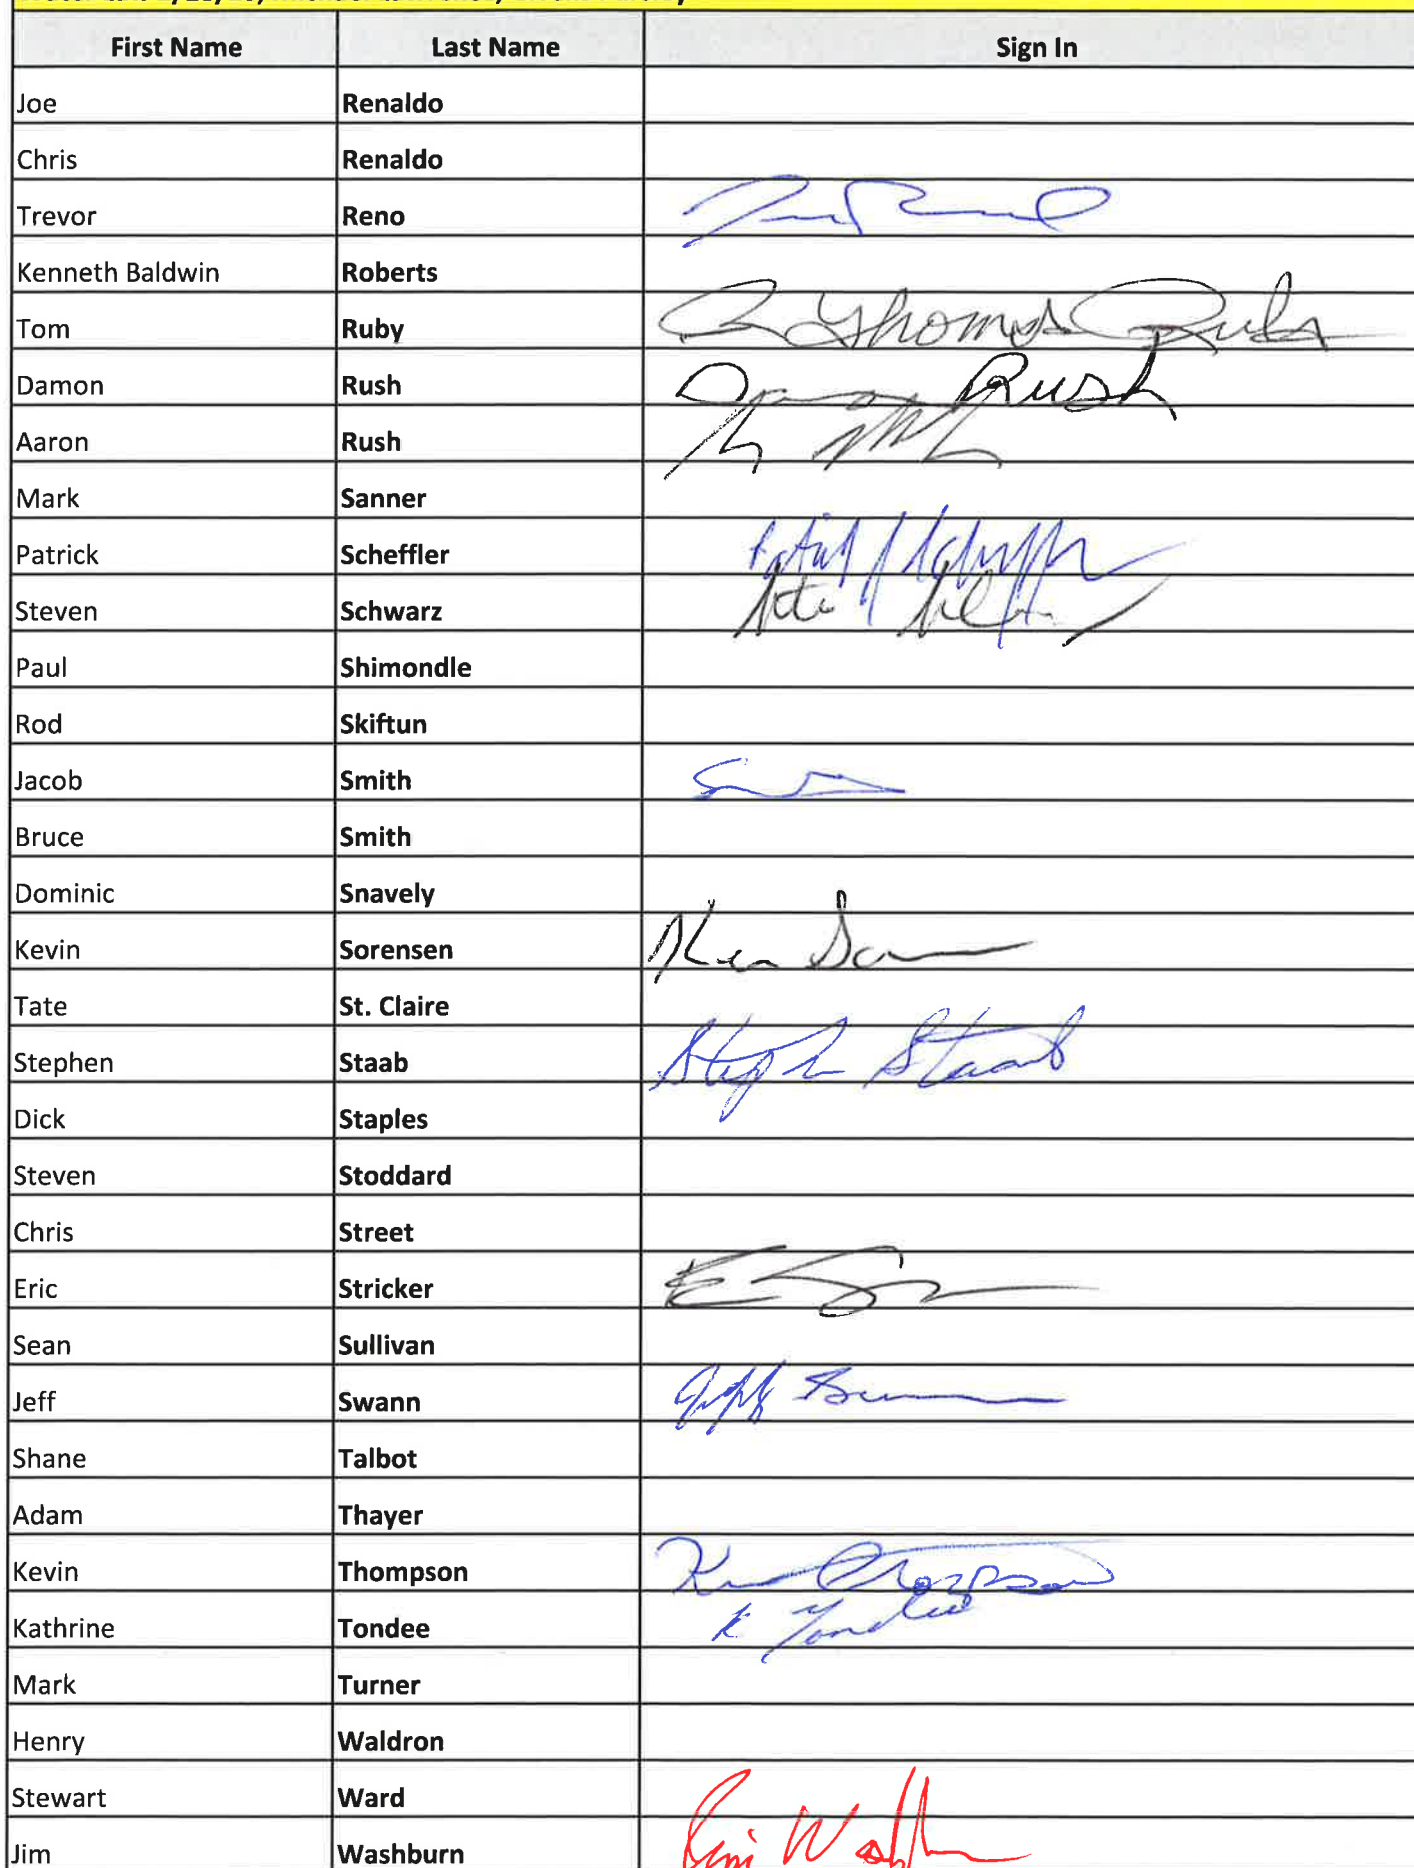 First Name Last Name Sign In
Joe Renaldo
Chris Renaldo
Trevor Reno
Kenneth Baldwin Roberts
Tom Ruby Thomas Ruby
Damon Rush Rush
Aaron Rush
Mark Sanner
Patrick Scheffler
Steven Schwarz
Paul Shimondle
Rod Skiftun
Jacob Smith
Bruce Smith
Dominic Snavely
Kevin Sorensen
Tate St. Claire
Stephen Staab Stephen Staab
Dick Staples
Steven Stoddard
Chris Street
Eric Stricker
Sean Sullivan
Jeff Swann
Shane Talbot
Adam Thayer
Kevin Thompson
Kathrine Tondee K Tondee
Mark Turner
Henry Waldron
Stewart Ward
Jim Washburn Jim